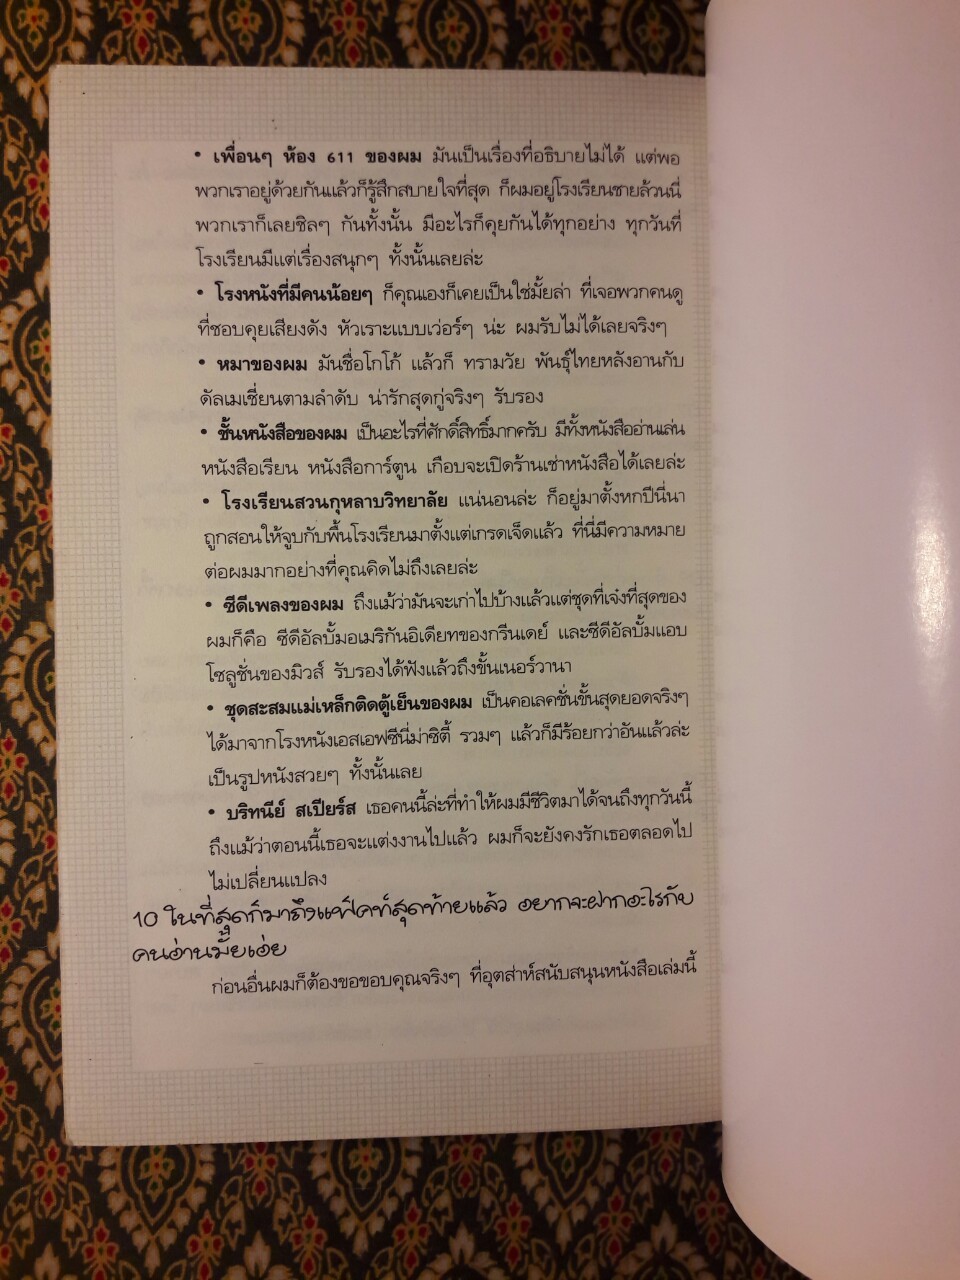 • เพื่อนๆ ห้อง 611 ของผม มันเป็นเรื่องที่อธิบายไม่ได้ แต่พอ
พวกเราอยู่ด้วยกันแล้วก็รู้สึกสบายใจที่สุด ก็ผมอยู่โรงเรียนชายล้วนนี่
พวกเราก็เลยชิลๆ กันทั้งนั้น มีอะไรก็คุยกันได้ทุกอย่าง ทุกวันที่
โรงเรียนมีแต่เรื่องสนุกๆ ทั้งนั้นเลยล่ะ
• โรงหนังที่มีคนน้อยๆ ก็คุณเองก็เคยเป็นใช่มั้ยล่า ที่เจอพวกคนดู
ที่ชอบคุยเสียงดัง หัวเราะแบบเว่อร์ๆ น่ะ ผมรับไม่ได้เลยจริงๆ
• หมาของผม มันชื่อโกโก้ แล้วก็ ทรามวัย พันธุ์ไทยหลังอานกับ
ดัลเมเชี่ยนตามลำดับ น่ารักสุดกู่จริงๆ รับรอง
• ชั้นหนังสือของผม เป็นอะไรที่ศักดิ์สิทธิ์มากครับ มีทั้งหนังสืออ่านเล่น
หนังสือเรียน หนังสือการ์ตูน เกือบจะเปิดร้านเช่าหนังสือได้เลยล่ะ
• โรงเรียนสวนกุหลาบวิทยาลัย แน่นอนล่ะ ก็อยู่มาตั้งหกปีนี่นา
ถูกสอนให้จูบกับพื้นโรงเรียนมาตั้งแต่เกรดเจ็ดแล้ว ที่นี่มีความหมาย
ต่อผมมากอย่างที่คุณคิดไม่ถึงเลยล่ะ
• ซีดีเพลงของผม ถึงแม้ว่ามันจะเก่าไปบ้างแล้วแต่ชุดที่เจ๋งที่สุดของ
ผมก็คือ ซีดีอัลบั้มอเมริกันอิเดียทของกรีนเดย์ และซีดีอัลบั้มแอบ
โซลูชั่นของมิวส์ รับรองได้ฟังแล้วถึงขั้นเนอร์วานา
• ชุดสะสมแม่เหล็กติดตู้เย็นของผม เป็นคอเลคชั่นขั้นสุดยอดจริงๆ
ได้มาจากโรงหนังเอสเอฟซีนี่ม่าซิตี้ รวมๆ แล้วก็มีร้อยกว่าอันแล้วล่ะ
เป็นรูปหนังสวยๆ ทั้งนั้นเลย
• บริทนีย์ สเปียร์ส เธอคนนี้ล่ะที่ทำให้ผมมีชีวิตมาได้จนถึงทุกวันนี้
ถึงแม้ว่าตอนนี้เธอจะแต่งงานไปแล้ว ผมก็จะยังคงรักเธอตลอดไป
ไม่เปลี่ยนแปลง
10 ในที่สุดก็มาถึงแฟ็คท์สุดท้ายแล้ว อยากจะฝากอะไรกับ
คนอ่านมั้ยเอ่ย
ก่อนอื่นผมก็ต้องขอขอบคุณจริงๆ ที่อุตส่าห์สนับสนุนหนังสือเล่มนี้